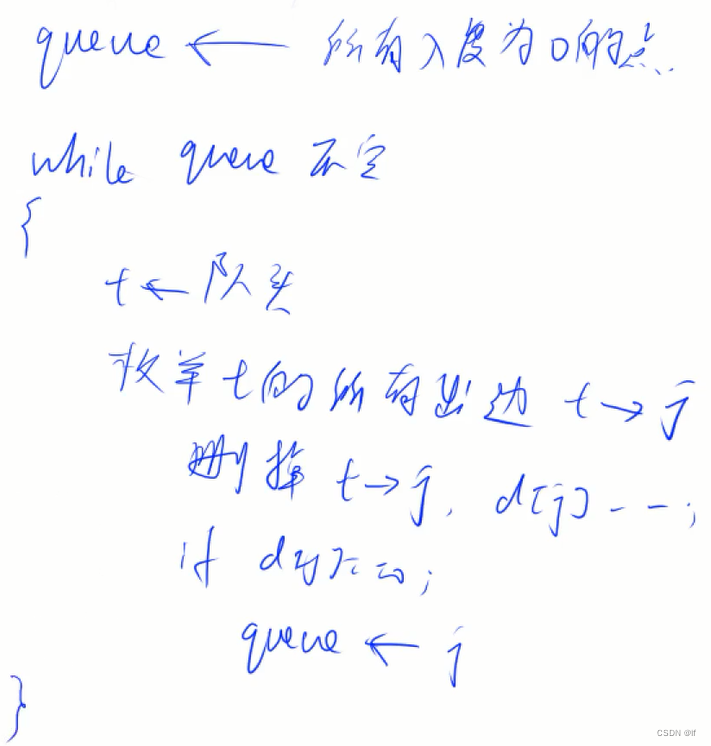 queue ← 所有入度为0的点
while queue 不空
{
t ← 队头
枚举 t的所有出边 t → j
删掉 t → j, d[j]--;
if d[j]==0;
queue ← j
}
CSDN @lf